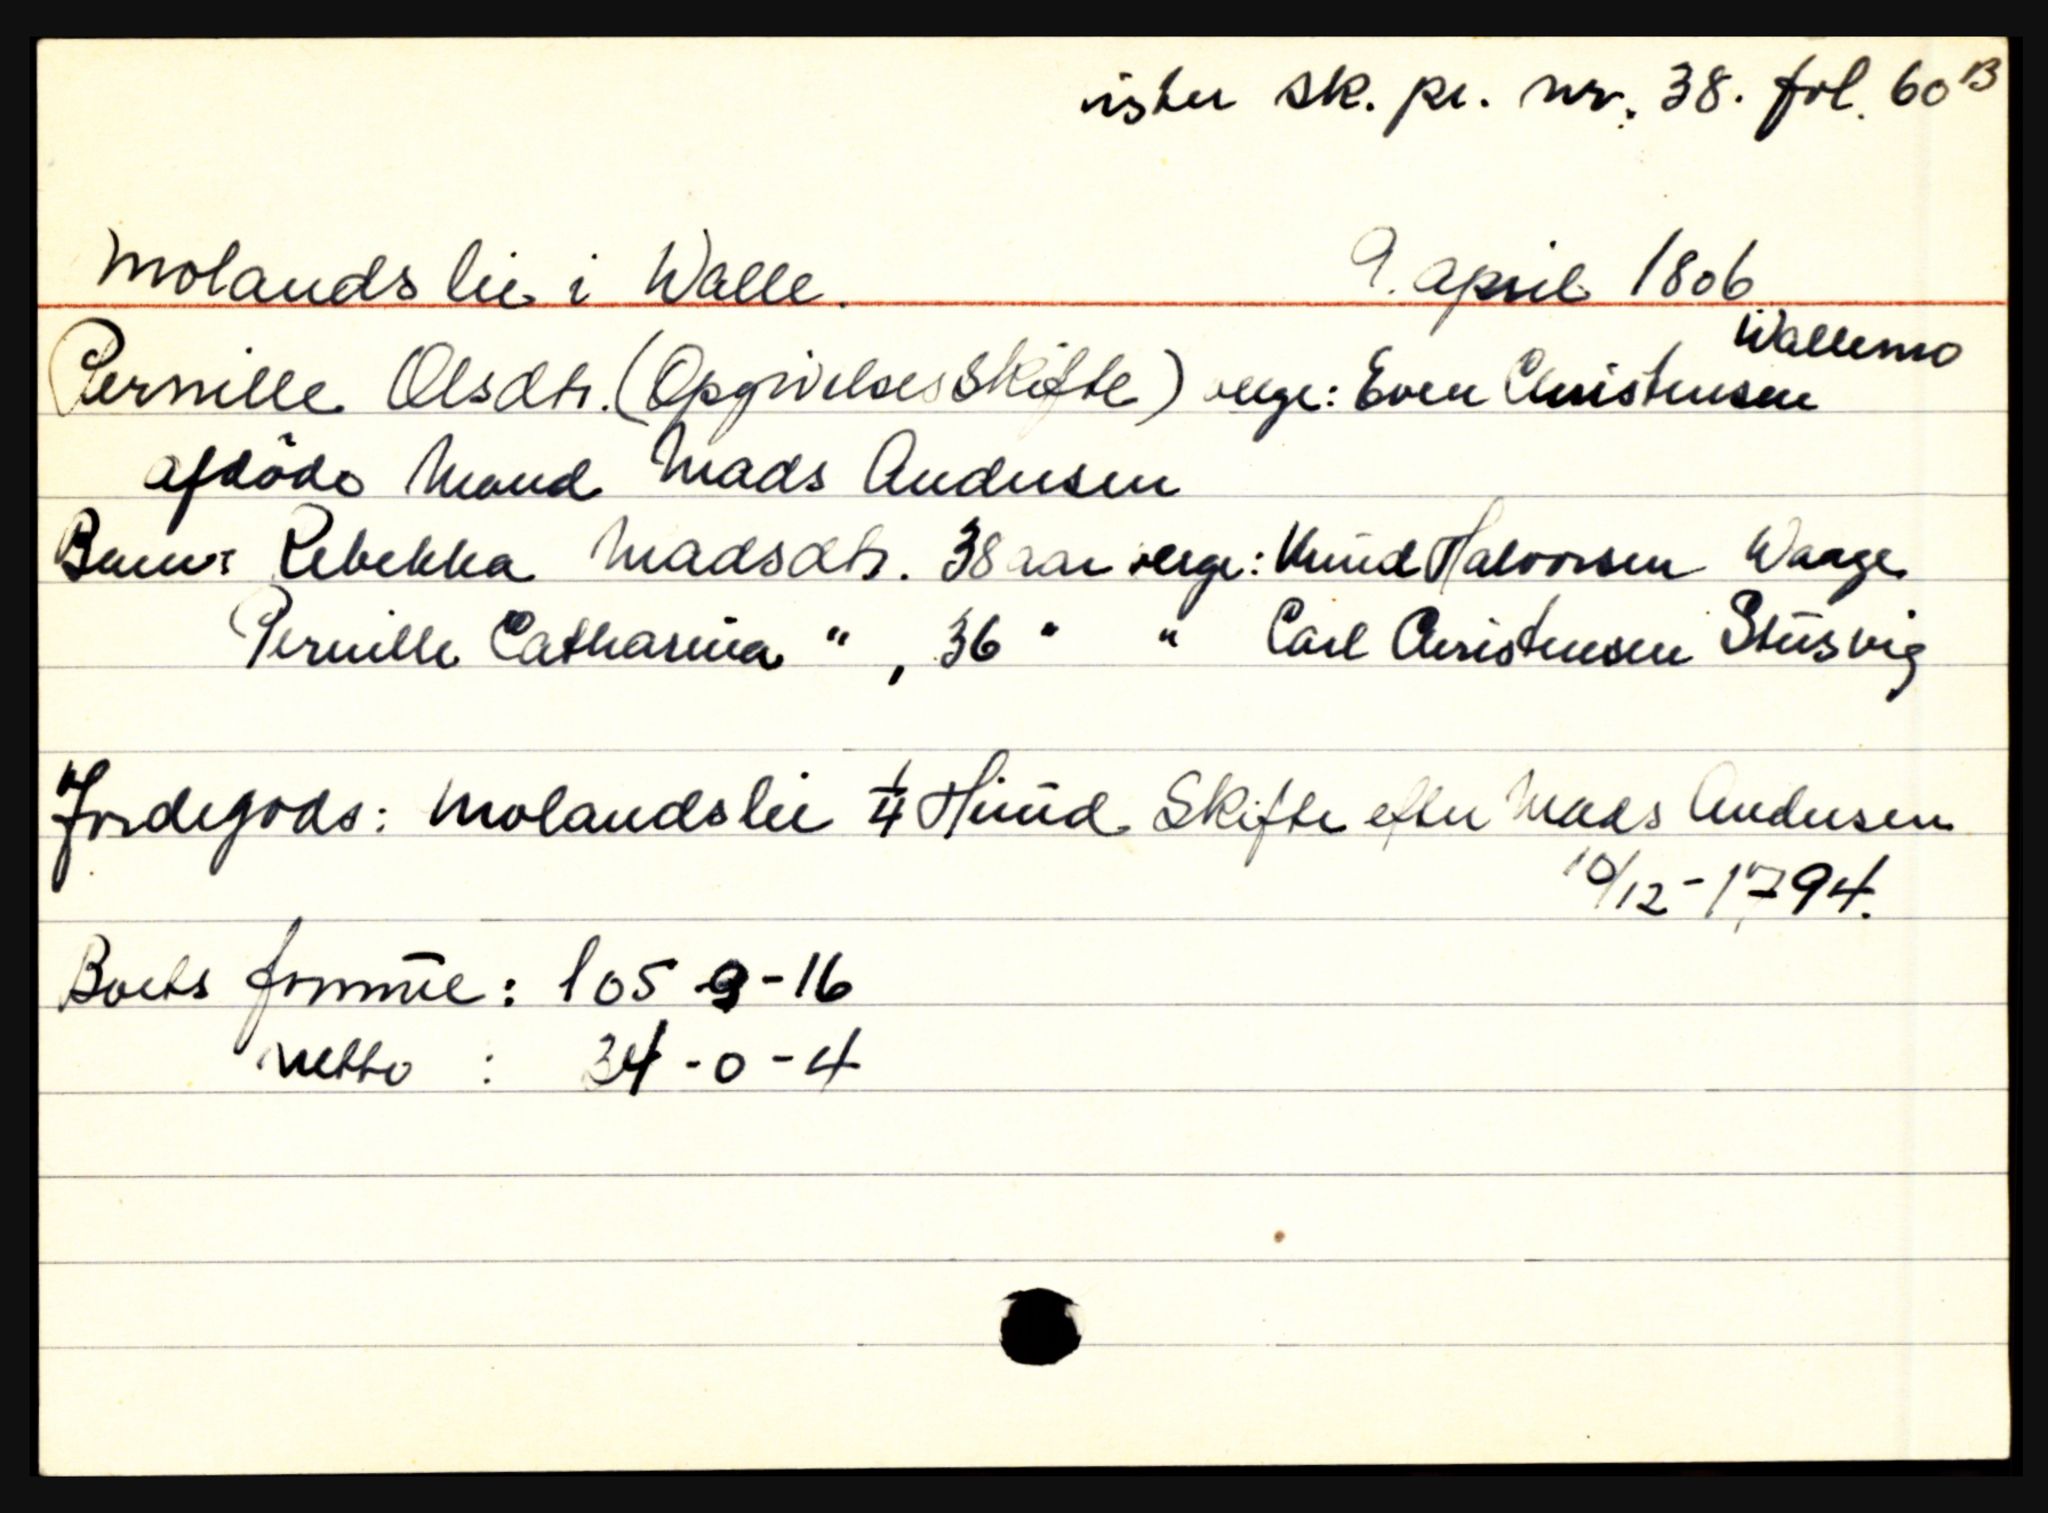 ister sk. pr. nr. 38. fol. 60 B
Molandslie i Walle. 9. april 1806
Pernille Olsdtr. (Opgivelsesskifte) verge: Even Christensen Wallemo
afdöde Mand Mads Andersen
Børn: Rebekka Madsdtr. 38 aar verge: Knud Halvorsen Waage
Pernille Catharina " , 36 " " Carl Christensen Stusvig
Jordegods: Molandslie 1/4 Hüüd Skifte efter Mads Andersen
10/12-1794.
Boets formüe: 105-3-16
netto : 34-0-4